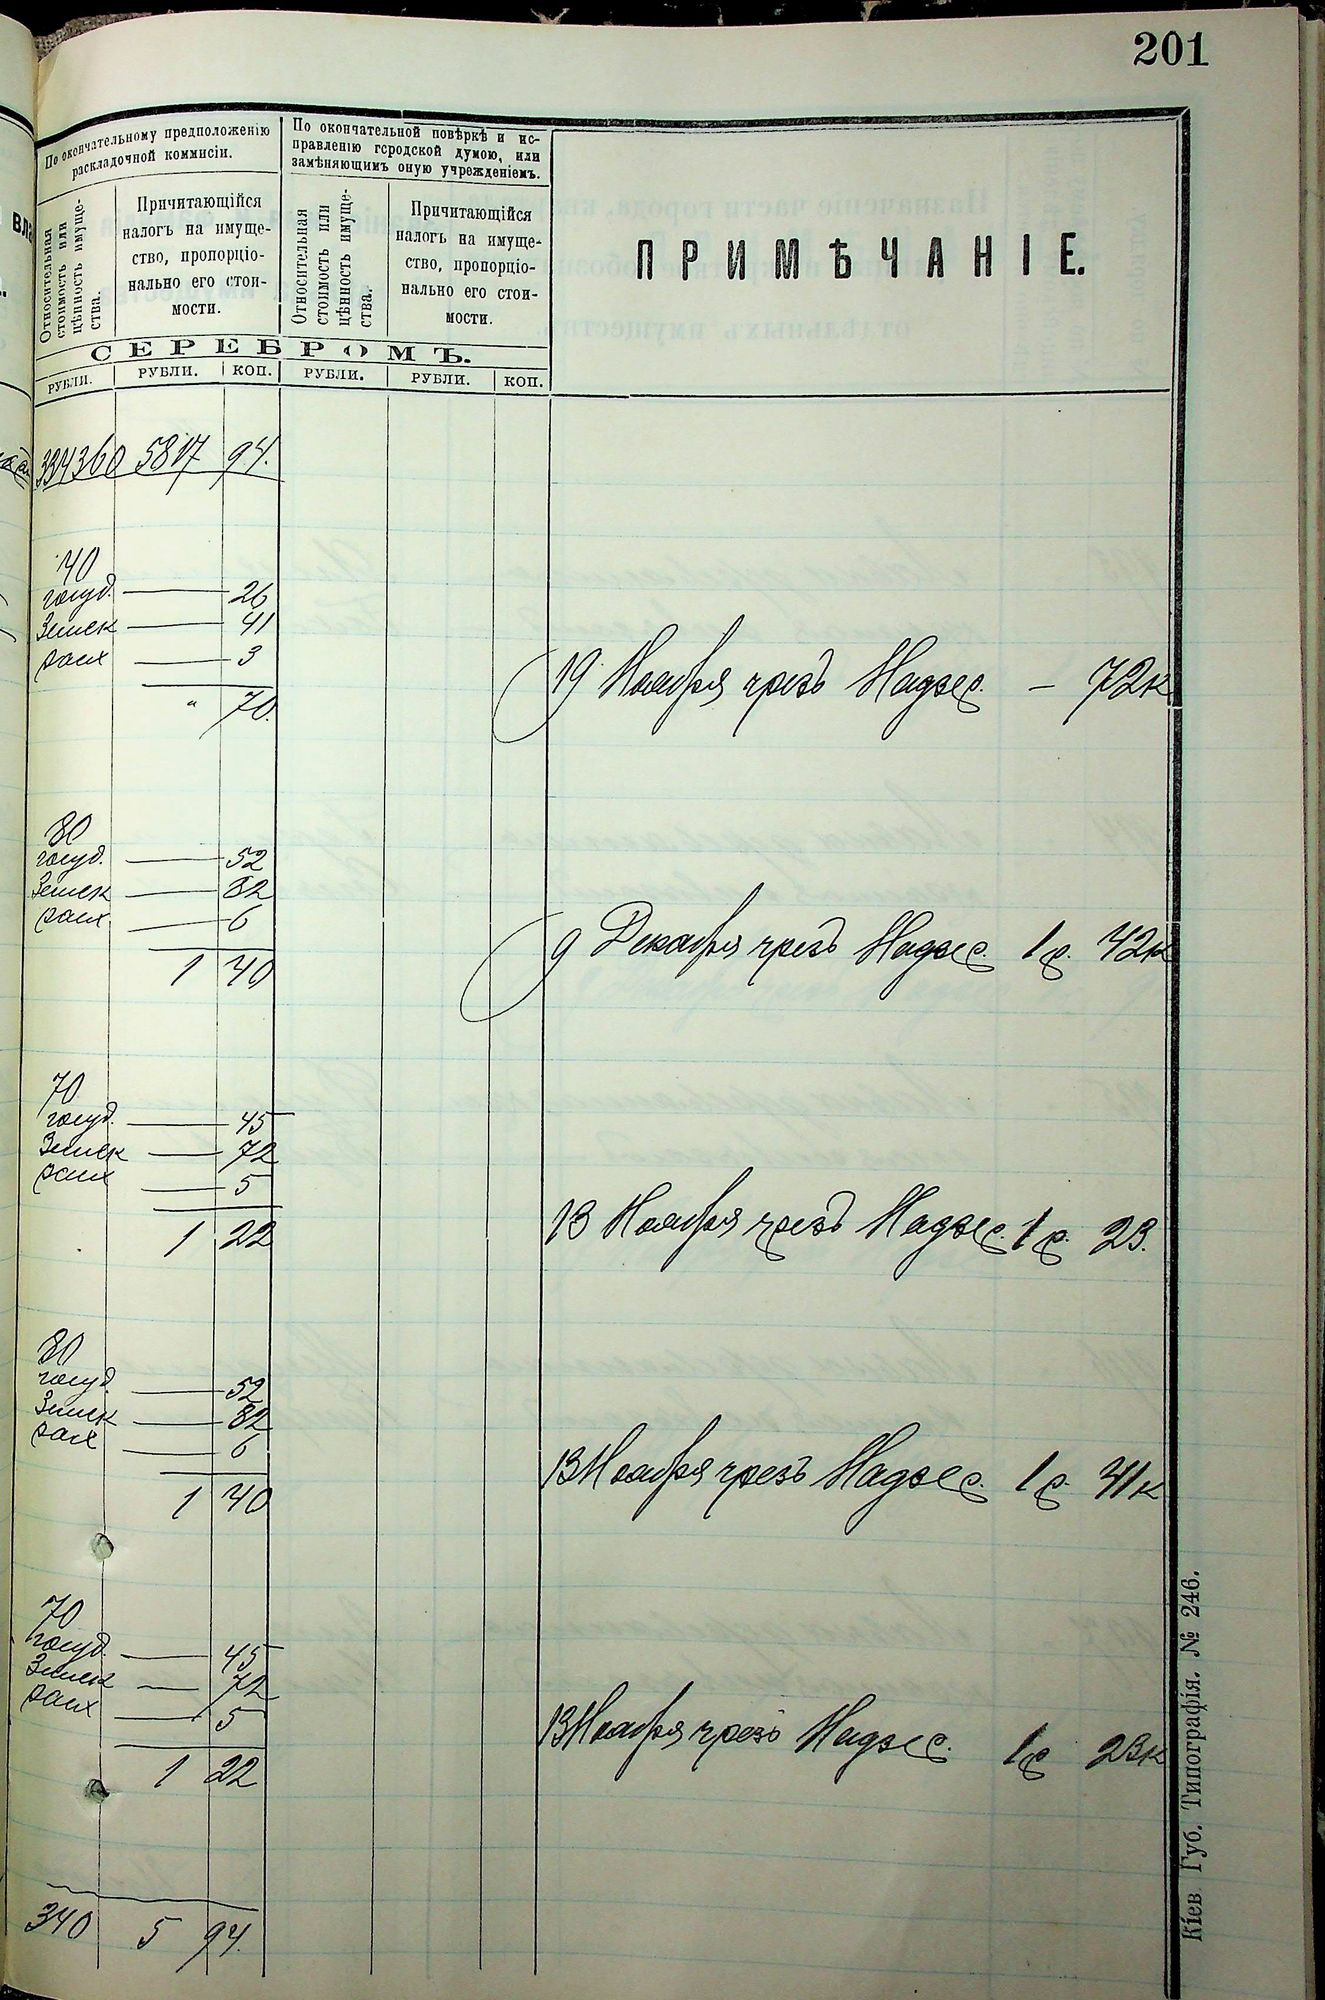 201
По окончательному предположенію
раскладочной коммисіи.
По окончательной повѣркѣ и ис-
правленію городской думою, или
замѣняющимъ оную учрежденіемъ.
Относительная
стоимость или
цѣнность имуще-
ства.
Причитающійся
налогъ на имуще-
ство, пропорціо-
нально его стои-
мости.
Относительная
стоимость или
цѣнность имуще-
ства.
Причитающійся
налогъ на имуще-
ство, пропорціо-
нально его стои-
мости.
ПРИМѢЧАНІЕ.
СЕРЕБРОМЪ.
РУБЛИ. РУБЛИ. КОП. РУБЛИ. РУБЛИ. КОП.
334360 5817 94.
40
госуд. — 26
Земск — 41
расх — 3
" 70.
19 Ноября чрезъ Надзс. — 72к
80
госуд. — 52
Земск — 82
расх. — 6
1 40
9 Декабря чрезъ Надзс. 1р. 42к
70
госуд. — 45
Земск — 72
расх — 5
1 22
13 Ноября чрезъ Надзс. 1р. 23.
80
госуд. — 52
Земск — 82
расх — 6
1 40
13 Ноября чрезъ Надзс. 1р. 41к
70
госуд. — 45
Земск — 72
расх — 5
1 22
13 Ноября чрезъ Надзс. 1р 23к
340 5 94.
Кіев Губ. Типографія. № 246.